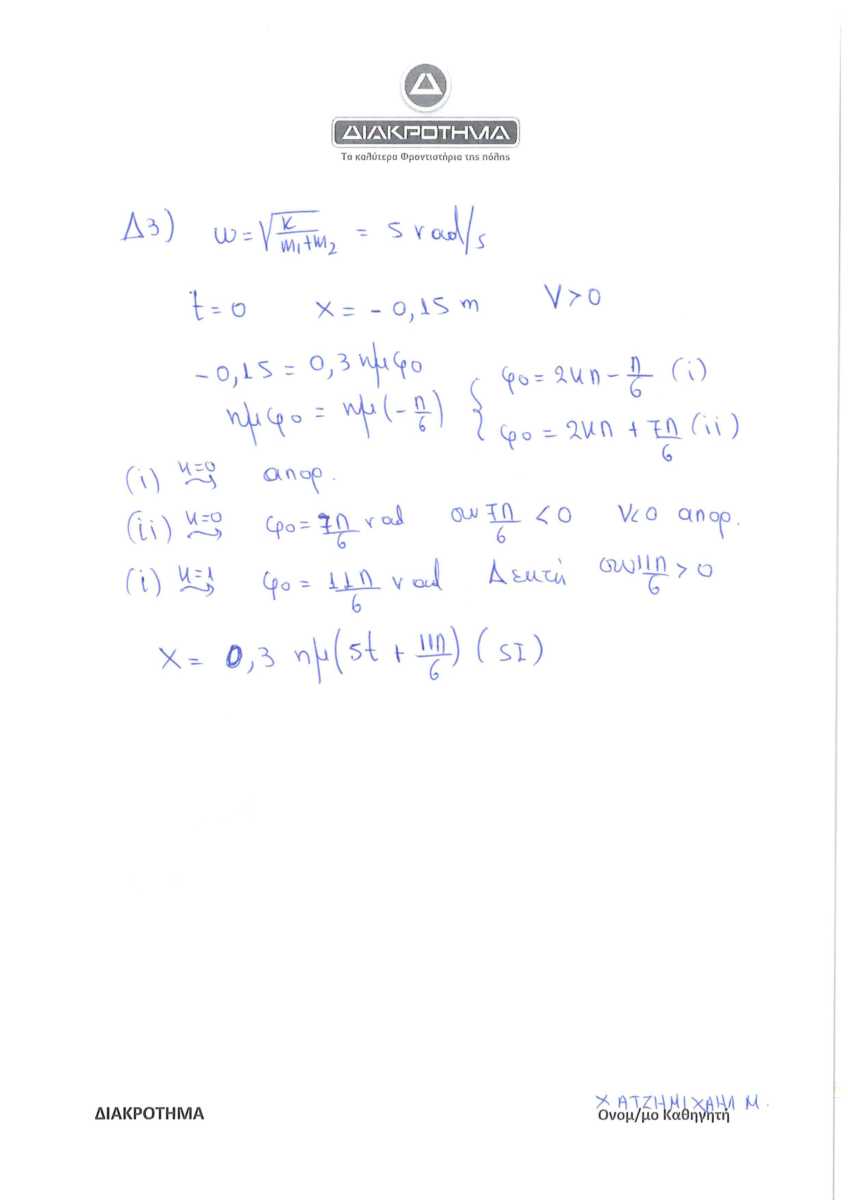 Δ
ΔΙΑΚΡΟΤΗΜΑ
Τα καλύτερα Φροντιστήρια της πόλης
Δ3) ω=√(K/(m₁+m₂)) = 5 rad/s
t=0 x=-0,15 m V>0
-0,15=0,3ημφ₀
ημφ₀=ημ(-π/6) { φ₀=2κπ-π/6 (i)
φ₀=2κπ+7π/6 (ii)
(i) κ=0 → απορ.
(ii) κ=0 → φ₀=7π/6 rad συν7π/6<0 V<0 απορ.
(i) κ=1 → φ₀=11π/6 rad Δεκτή συν11π/6>0
x=0,3 ημ(5t+11π/6) (SI)
ΧΑΤΖΗΜΙΧΑΗΛ Μ.
ΔΙΑΚΡΟΤΗΜΑ Ονομ/μο Καθηγητή